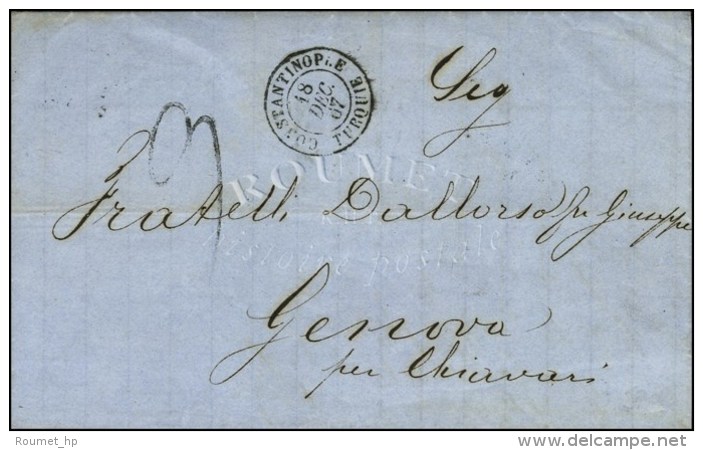 CONSTANTINOPLE TURQUIE
18
DEC.
67
Sig
Fratelli Dallorso fu Giuseppe
Genova
per Chiavari
ROUMET
histoire postale
Roumet_hp
delcampe.net